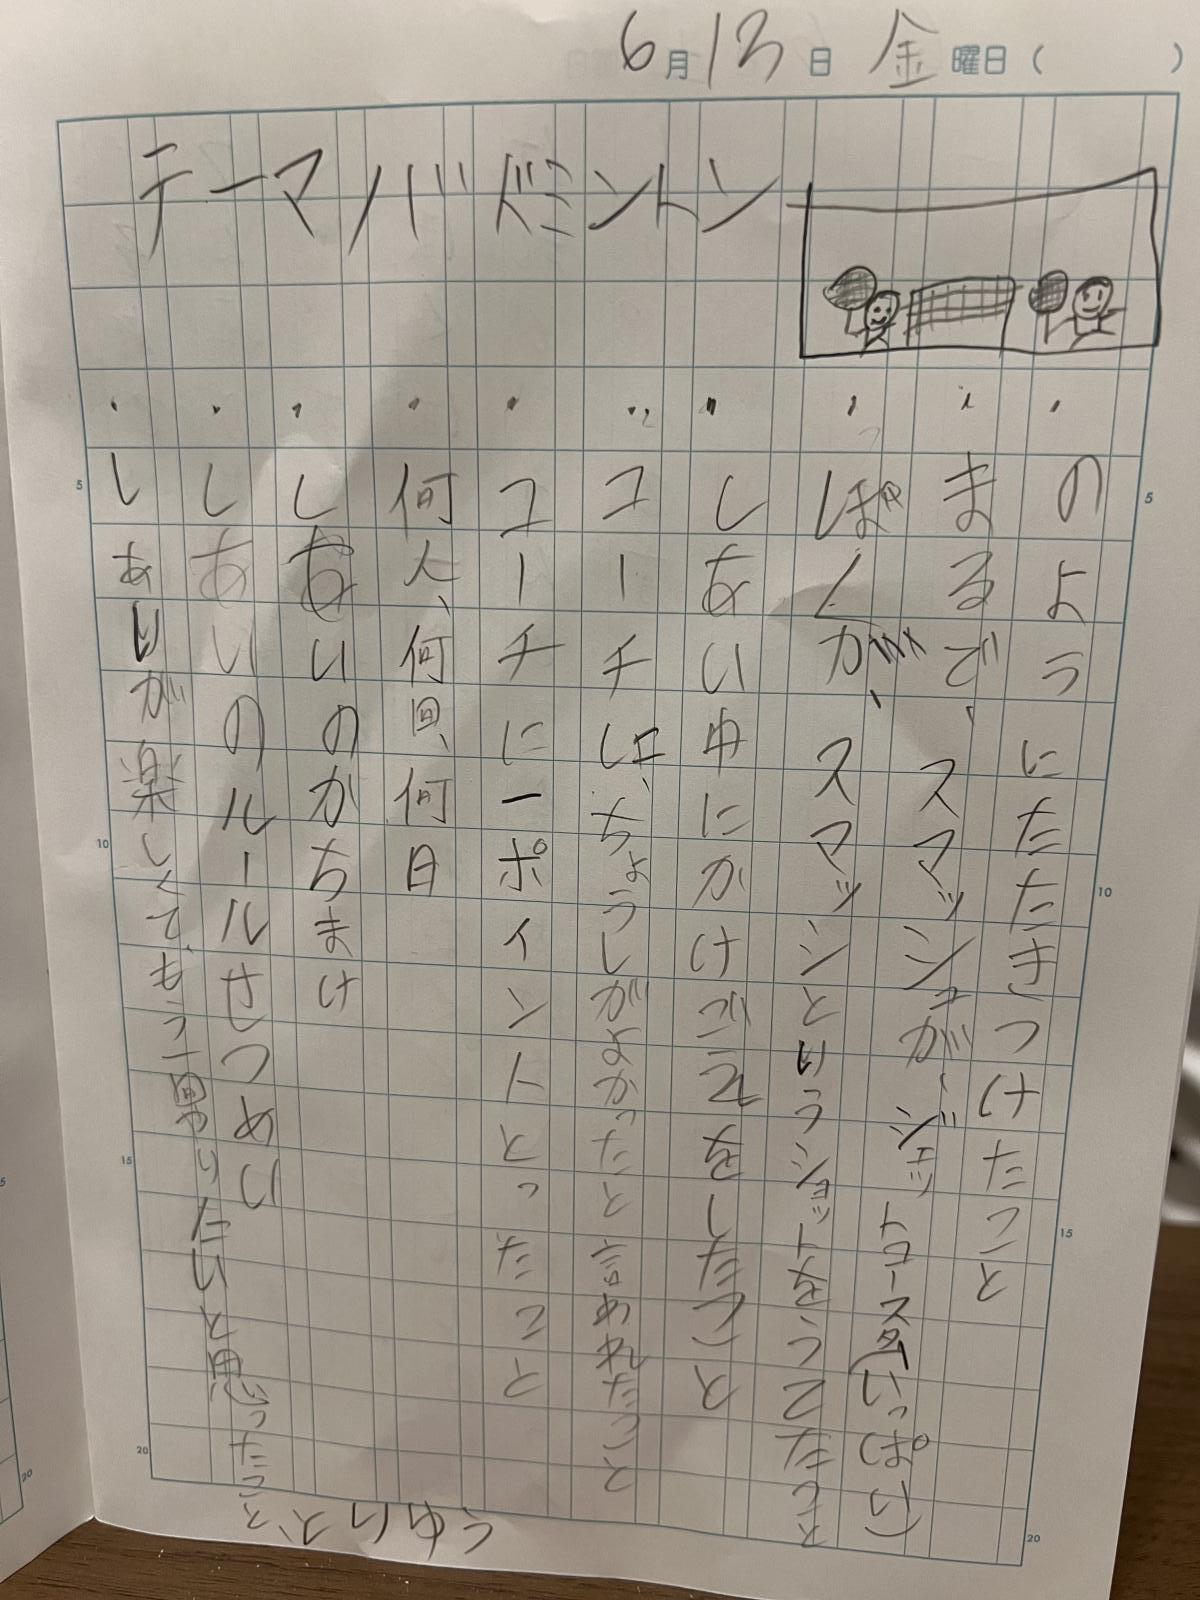 6月13日 金曜日( )
テーマ バドミントン
・のようにたたきつけたこと
・まるで、スマッシュが、ジェットコースター
いっぱい
・ぼくが、スマッシュというショットをうてたこと
・しあい中にかけごえをしたこと
・コーチに、ちょうしがよかったと言われたこと
・コーチに一ポイントとったこと
・何人、何回、何日
・しあいのかちまけ
・しあいのルールせつめい
・しあいが楽しくて、もう一回やりたいと思ったこと
5
10
15
20
5
10
15
20